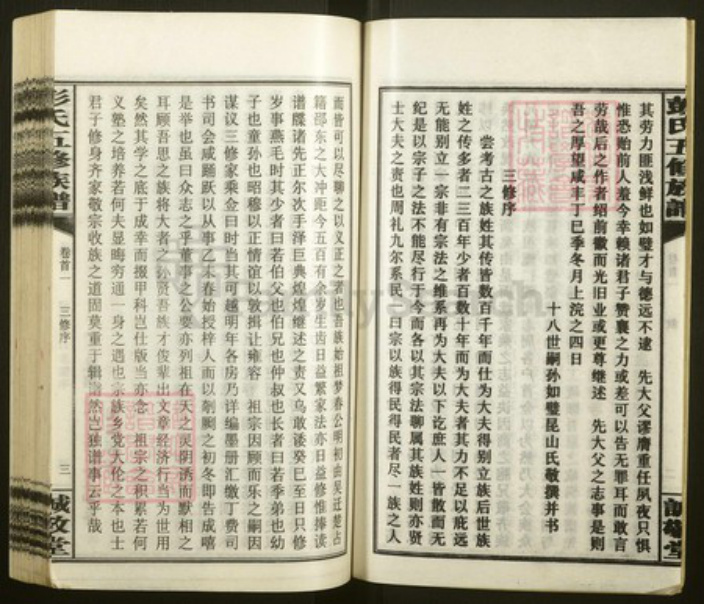 彭氏五修族譜
誠敬堂
其劳力匪浅鲜也如璧才与德远不逮　先大父谬膺重任夙夜只惧
惟恐贻前人羞今幸赖诸君子赞襄之力或差可以告无罪耳而敢言
劳哉后之作者绍前徽而光旧业或更尊继述　先大父之志事是则
吾之厚望咸丰丁巳季冬月上浣之四日
十八世嗣孙如璧昆山氏敬撰并书
三修序
尝考古之族姓其传皆数百千年而仕为大夫得别立族后世族
姓之传多者二三百年少者百数十年而为大夫者其力不足以庇远
无能别立一宗非有宗法之维系再为大夫以下讫庶人一皆散而无
纪是以宗子之法不能尽行于今而各以其宗法聊属其族姓则亦贤
士大夫之责也周礼九尔系民一曰宗以族得民得民者尽一族之人
而皆可以尽聊之以义正之者也吾族始祖梦春公明初由吴迁楚占
籍邵东之大冲距今五百有余岁生齿日益繁家法亦日益修惟捧读
谱牒诸先正尔次手泽巨典煌煌继述之责又乌敢诿癸巳至日只修
岁事燕毛时其少者曰若伯父也伯兄也仲叔也长者曰若季弟也幼
子也童孙也昭穆以正情谊以敦揖让雍容　祖宗因顾而乐之嗣因
谋议三修家乘佥曰时当其可越明年各房乃详编墨册汇缴丁费司
书司会咸踊跃以从事乙未春始授梓人而以剞劂之初冬即告成嘻
是举也虽曰众志之乎董事之公要亦列祖在天之灵阴诱而默相之
耳顾吾思之族将大者之孙贤吾族才俊辈出文章经济行当为世用
矣然其学之底于成幸而掇甲科岂仕版当亦念　祖宗之积累若何
义塾之培养若何夫显晦穷通一身之遇也宗族乡党大伦之本也士
君子修身齐家敬宗收族之道固莫重于辑谱然岂独谱事云乎哉
彭氏五修族譜
卷首一
三修序
三
誠敬堂